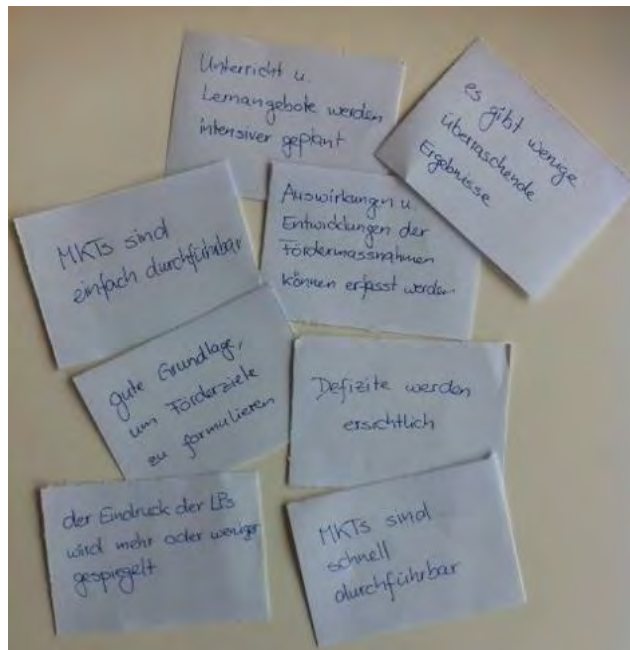 Unterricht u.
Lernangebote werden
intensiver geplant
es gibt wenige
überraschende
Ergebnisse
MKTs sind
einfach durchführbar
Auswirkungen u.
Entwicklungen der
Fördermassnahmen
können erfasst werden
gute Grundlage,
um Förderziele
zu formulieren
Defizite werden
ersichtlich
der Eindruck der LPs
wird mehr oder weniger
gespiegelt
MKTs sind
schnell
durchführbar